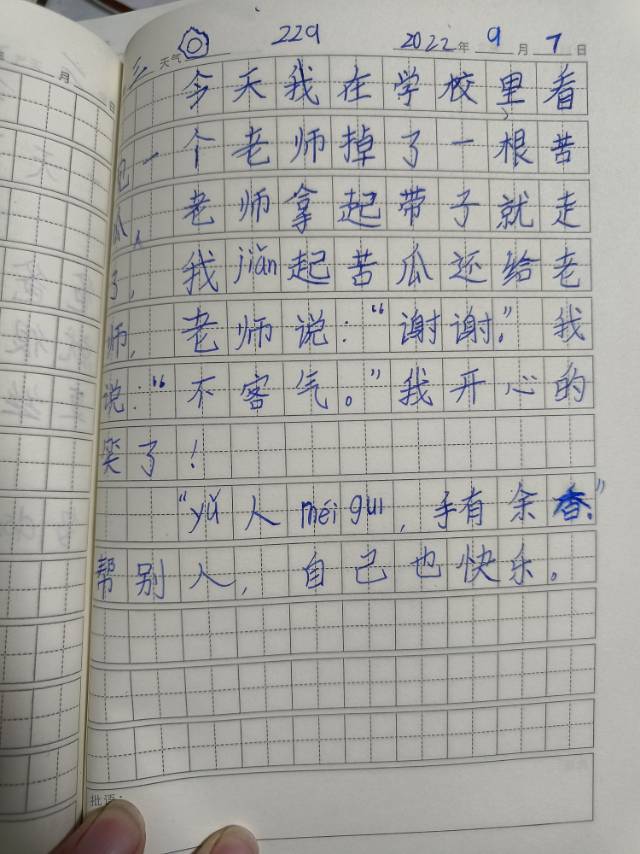 三 天气 229 2022年 9月 7日
今天我在学校里看
见一个老师掉了一根苦
瓜,老师拿起带子就走
了,我jiǎn起苦瓜还给老
师,老师说:“谢谢。”我
说:“不客气。”我开心的
笑了!
“yǔ人méi gui,手有余香。”
帮别人,自己也快乐。
批语: